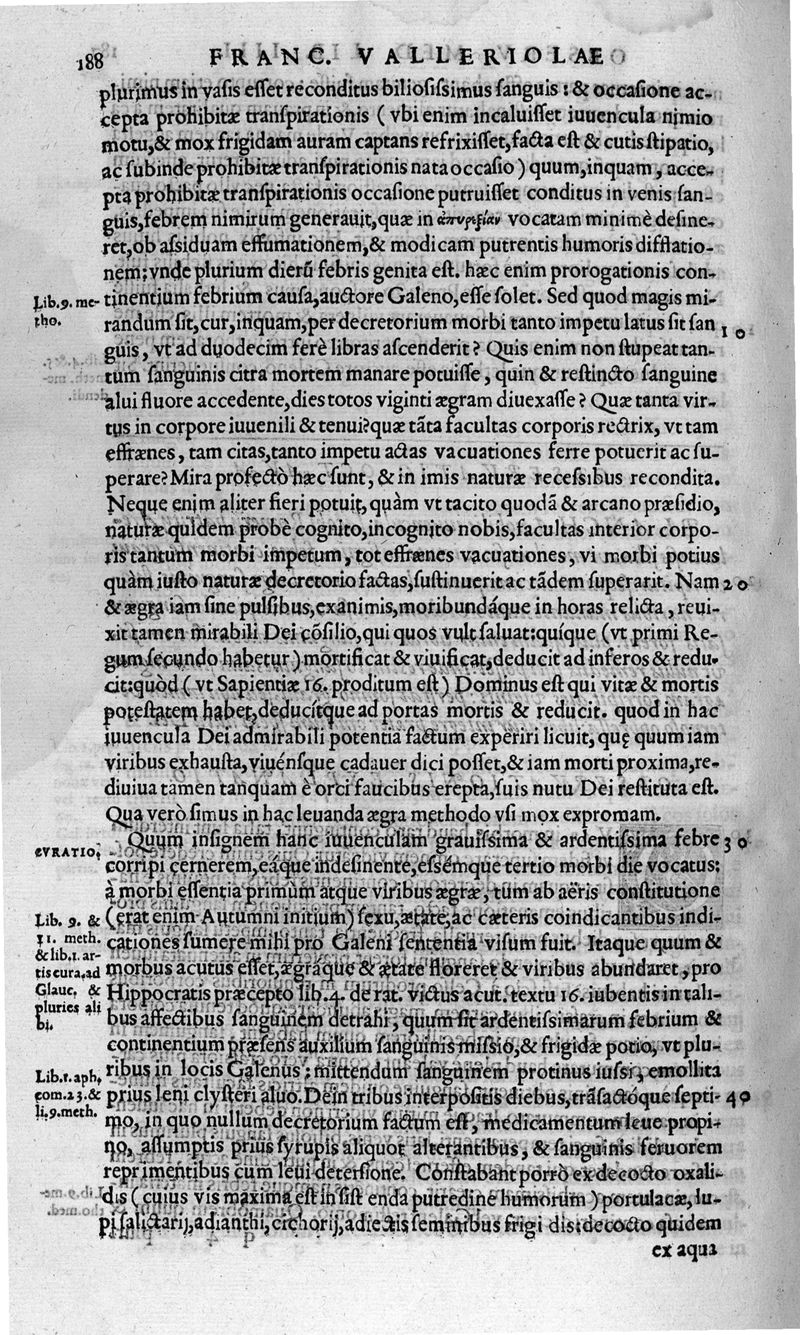 188 FRANC. VALLERIOLAE
plurimus in vasis esſet reconditus bilioſiſsimus ſanguis: & occaſione ac-
cepta prohibitæ tranſpirationis (vbi enim incaluiſſet iuuencula nimio
motu,& mox frigidam auram captans refrixiſſet,facta eſt & cutis ſtipatio,
ac ſubinde prohibitæ tranſpirationis nata occaſio) quum,inquam, acce-
pta prohibitæ tranſpirationis occaſione putruiſſet conditus in venis ſan-
guis,febrem nimirum generauit,quæ in ἀπυρεξίαν vocatam minimè deſine-
ret,ob aſsiduam effumationem,& modicam putrentis humoris difflatio-
nem;vnde plurium dierũ febris genita eſt. hæc enim prorogationis con-
Lib.9. me-
tho.
tinentium febrium cauſa,auctore Galeno,eſſe ſolet. Sed quod magis mi-
randum ſit,cur,inquam,per decretorium morbi tanto impetu latus ſit ſan 10
guis, vt ad duodecim ferè libras aſcenderit? Quis enim non ſtupeat tan-
tum ſanguinis citra mortem manare potuiſſe, quin & reſtincto ſanguine
alui fluore accedente,dies totos viginti ægram diuexaſſe? Quæ tanta vir-
tus in corpore iuuenili & tenui?quæ tãta facultas corporis rectrix, vt tam
effrænes, tam citas,tanto impetu actas vacuationes ferre potuerit ac ſu-
perare? Mira profectò hæc ſunt, & in imis naturæ receſsibus recondita.
Neque enim aliter fieri potuit,quàm vt tacito quodã & arcano præſidio,
naturæ quidem probè cognito,incognito nobis,facultas interior corpo-
ris tantum morbi impetum, tot effrænes vacuationes, vi morbi potius
quàm iuſto naturæ decretorio factas,ſuſtinuerit ac tãdem ſuperarit. Nam 20
& ægra iam ſine pulſibus,exanimis,moribundáque in horas relicta, reui-
xit tamen mirabili Dei cõſilio,qui quos vult ſaluat:quíque (vt primi Re-
gum ſecundo habetur) mortificat & viuificat,deducit ad inferos & redu-
cit:quòd (vt Sapientiæ 16. proditum eſt) Dominus eſt qui vitæ & mortis
poteſtatem habet,deducítque ad portas mortis & reducit. quod in hac
iuuencula Dei admirabili potentia factum experiri licuit, quę quum iam
viribus exhauſta,viuénſque cadauer dici poſſet,& iam morti proxima,re-
diuiua tamen tanquam è orci faucibus erepta,ſuis nutu Dei reſtituta eſt.
Qua verò ſimus in hac leuanda ægra methodo vſi mox expromam.
CVRATIO.
Quum inſignem hanc iuuenculam grauiſsima & ardentiſsima febre 30
corripi cernerem,eáque indeſinente,eſsémque tertio morbi die vocatus:
à morbi eſſentia primùm atque viribus ægræ, tùm ab aëris conſtitutione
Lib. 9. &
11. meth.
& lib.1. ar-
tis cura.ad
Glauc. &
pluries ali
bi.
(erat enim Autumni initium) ſexu,ætate,ac cæteris coindicantibus indi-
cationes ſumere mihi pro Galeni ſententia viſum fuit. Itaque quum &
morbus acutus eſſet,ægráque & ætate floreret & viribus abundaret, pro
Hippocratis præcepto lib.4. de rat. victus acut. textu 16. iubentis in tali-
bus affectibus ſanguinem detrahi, quum ſit ardentiſsimarum febrium &
continentium præſens auxilium ſanguinis miſsio,& frigidæ potio, vt plu-
Lib.1. aph,
com.23.&
li.9.meth.
ribus in locis Galenus: mittendum ſanguinem protinus iuſsi, emollita
prius leni clyſteri aluo. Dein tribus interpoſitis diebus,trãſactóque ſepti- 40
mo, in quo nullum decretorium factum eſt, medicamentum leue propi-
no, aſſumptis prius ſyrupis aliquot alterantibus, & ſanguinis feruorem
reprimentibus cum leui deterſione. Conſtabant porrò ex decocto oxali-
dis (cuius vis maxima eſt in ſiſt enda putredine humorum) portulacæ, lu-
pi ſalictarij,adianthi,cichorij,adiectis ſeminibus frigi dis;decocto quidem
ex aqua